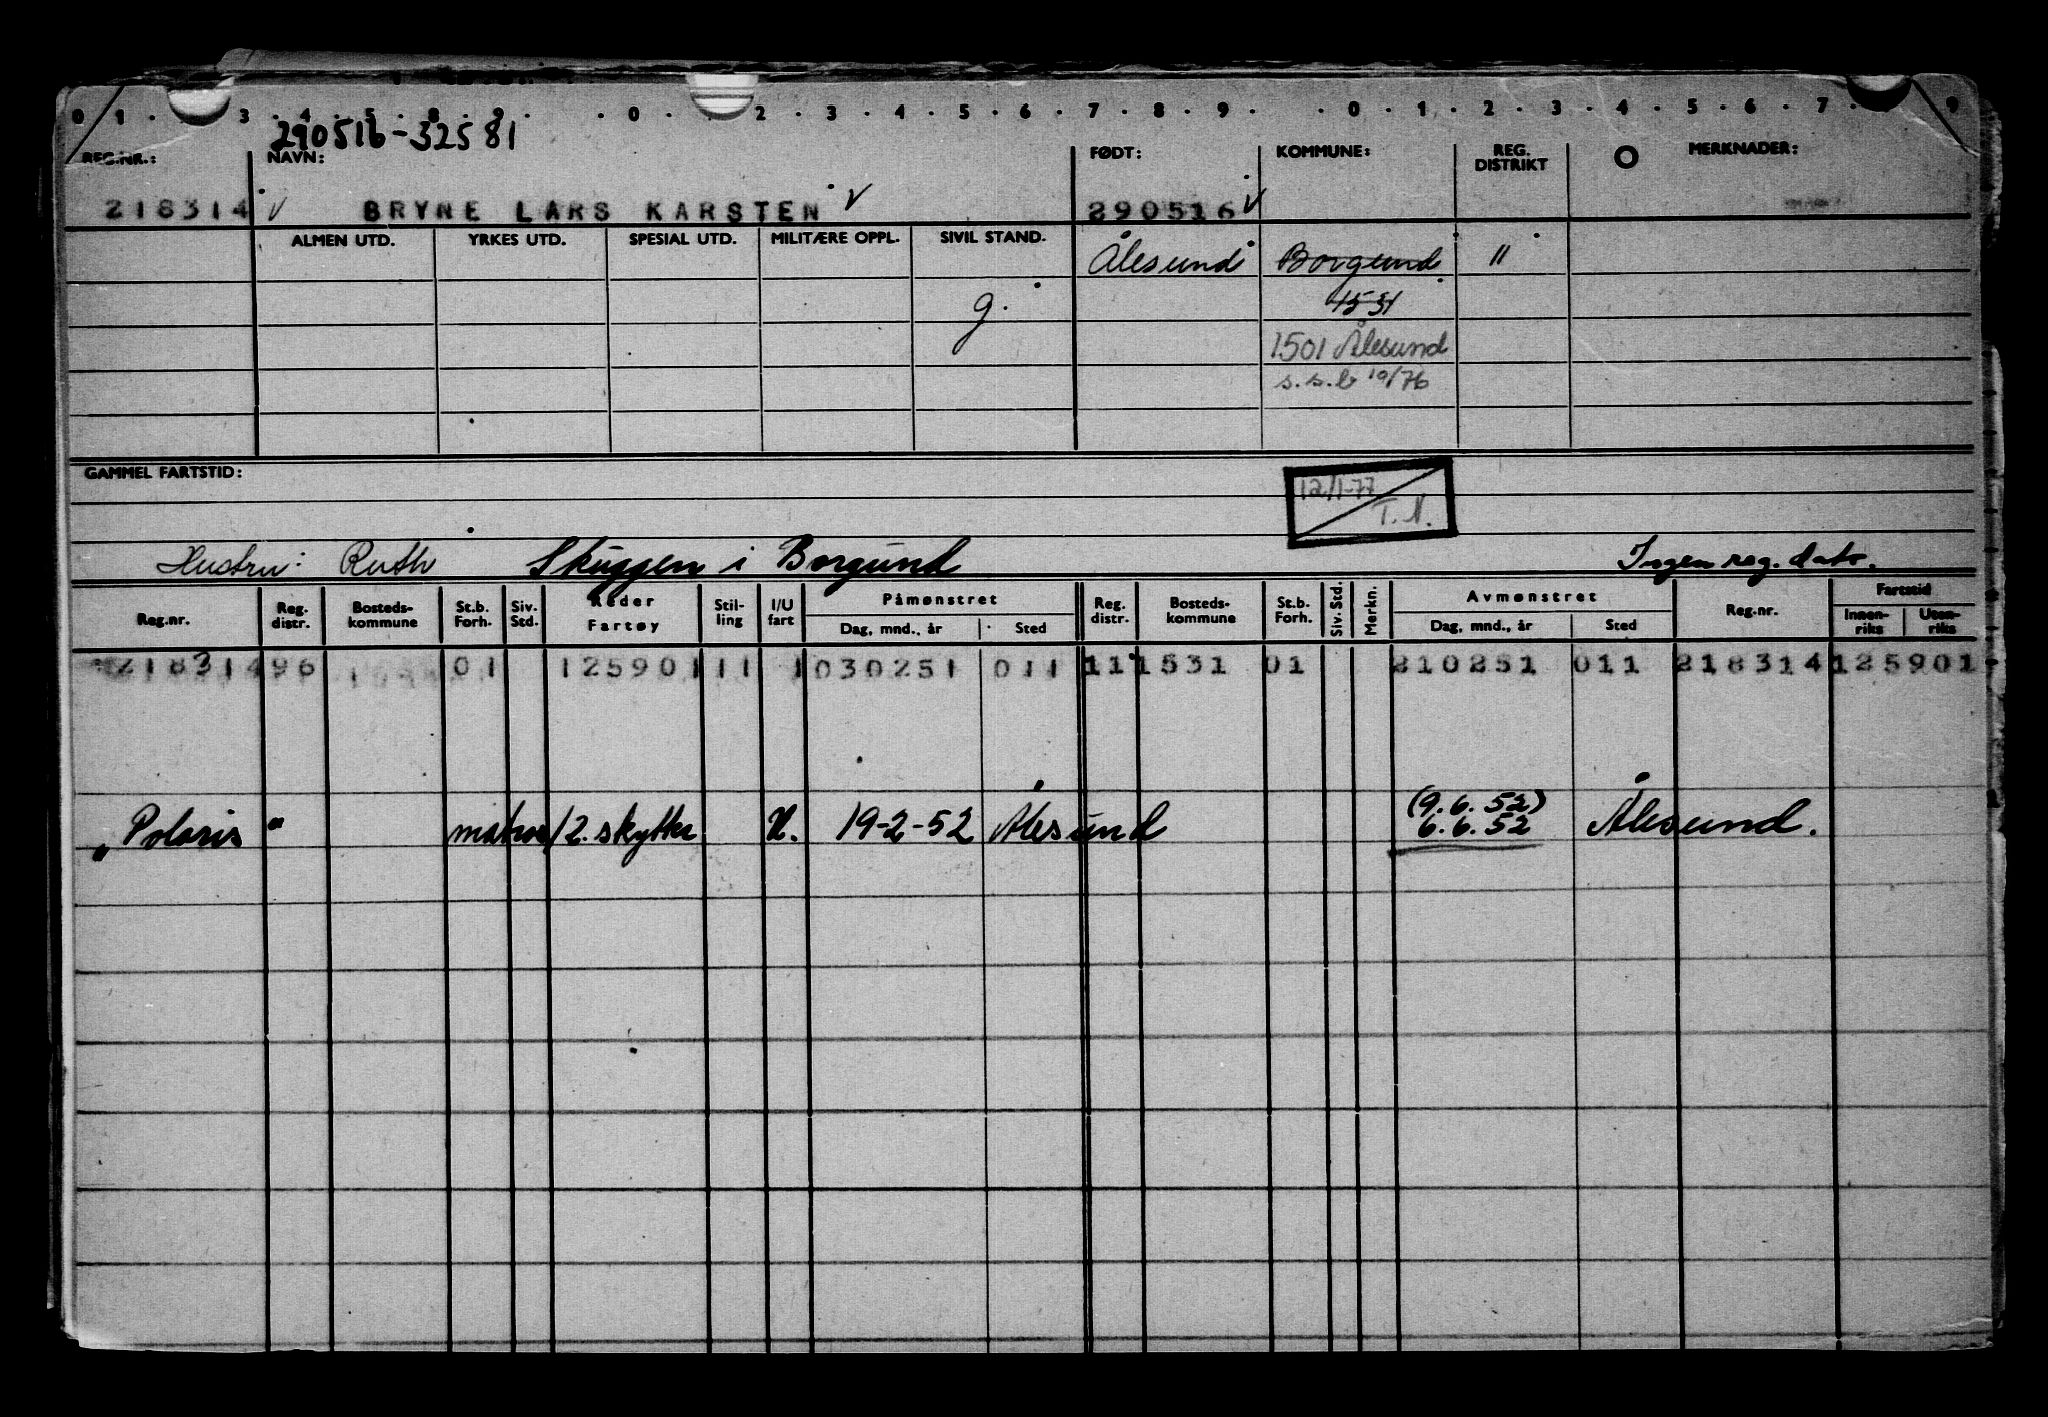 0 1 . 3 4 5 8 9 . . 0 . . 2 . 3 . 4 . 5 . 6 . 7 . 8 . 9 . . 0 . 1 . 2 . 3 . 4 . 5 . 6 . 7 . 9
290516-32581
REG.NR.: NAVN: FØDT: KOMMUNE: REG. DISTRIKT MERKNADER:
218314 V BRYNE LARS KARSTEN V 290516 V
ALMEN UTD. YRKES UTD. SPESIAL UTD. MILITÆRE OPPL. SIVIL STAND. Ålesund Borgund 11
g. 1531
1501 Ålesund
s.s.b 10/76
GAMMEL FARTSTID:
12/1-77
T.N.
Hustru: Ruth Skuggen i Borgund Ingen reg. dato.
Reg.nr. Reg. distr. Bosteds-kommune St.b. Forh. Siv. Std. Reder Fartøy Stil-ling I/U fart Påmønstret Dag, mnd., år Sted Reg. distr. Bosteds-kommune St.b. Forh. Siv. Std. Merkn. Avmønstret Dag, mnd., år Sted Reg.nr. Fartstid Innen-riks Uten-riks
218314 96 01 125901 11 1 030251 011 11 1531 01 210251 011 218314 125901
(9.6.52)
"Polaris" matros/2. skytter U. 19-2-52 Ålesund 6.6.52 Ålesund.